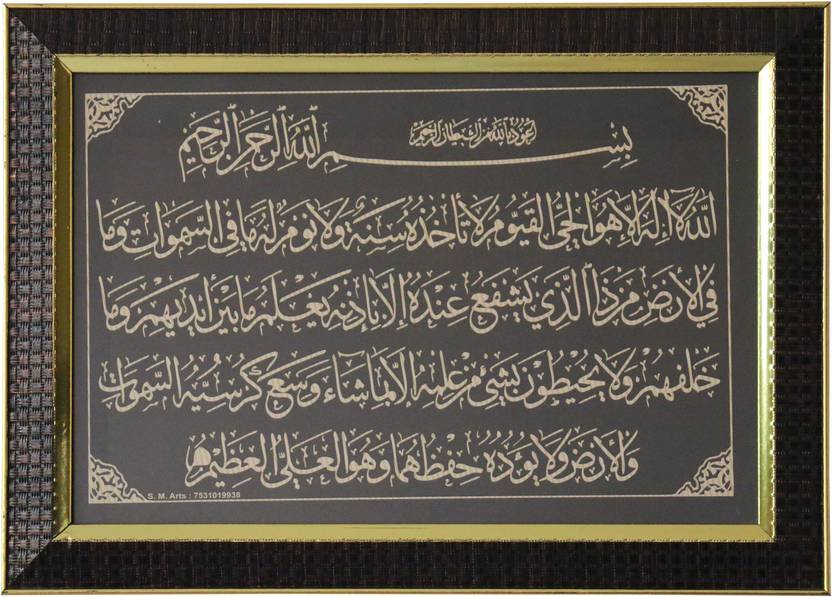 اعوذ بالله من الشيطان الرجيم
بسم الله الرحمن الرحيم
الله لا اله الا هو الحي القيوم لا تاخذه سنة ولا نوم له ما في السموات وما
في الأرض من ذا الذي يشفع عنده إلا باذنه يعلم ما بين أيديهم وما
خلفهم ولا يحيطون بشيء من علمه الا بما شاء وسع كرسيه السموات
والأرض ولا يوده حفظهما وهو العلي العظيم
S. M. Arts : 7531019938